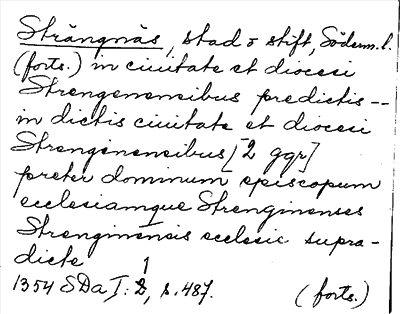 Strängnäs, stad o stift, Söderm.l.
(forts.) in ciuitate et diocesi
Strengenensibus predictis --
in dictis ciuitate et diocesi
Strengenensibus [2 ggr]
preter dominum episcopum
ecclesiamque Strenginenses
Strenginensis ecclesie supra-
dicte
1354 SDa I: 1, s. 487. (forts.)